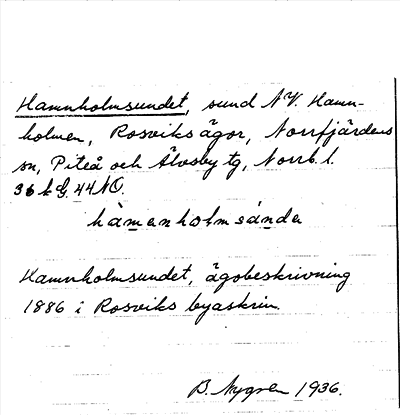 Hamnholmsundet, sund NV. Hamn-
holmen, Rosviks ägor, Norrfjärdens
sn, Piteå och Älvsby tg, Norrb. l.
36 k G. 44 NO.
hàmənholmsúndə
Hamnholmsundet, ägobeskrivning
1886 i Rosviks byaskrin
B. Nygren 1936.